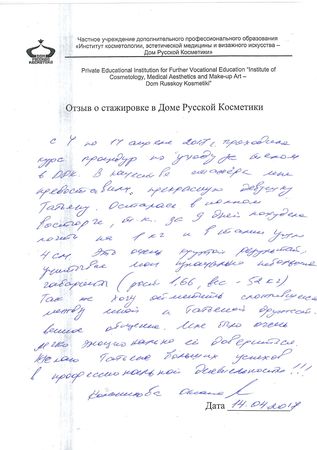 ДОМ РУССКОЙ КОСМЕТИКИ
Частное учреждение дополнительного профессионального образования
«Институт косметологии, эстетической медицины и визажного искусства –
Дом Русской Косметики»
Private Educational Institution for Further Vocational Education "Institute of
Cosmetology, Medical Aesthetics and Make-up Art –
Dom Russkoy Kosmetiki"
Отзыв о стажировке в Доме Русской Косметики
С 4 по 14 апреля 2017 г. проходила
курс процедур по уходу за телом
в ДРК. В качестве стажёра мне
предоставили прекрасную девушку
Татьяну. Осталась в полном
восторге, т.к. за 9 дней похудела
почти на 1 кг и в талии ушло
4 см. Это очень крутой результат,
учитывая мои
габариты (рост 1.66, вес - 52 кг)
Так же хочу отметить сложившееся
между мной и Татьяной дружест-
венное общение. Мне было очень
легко эмоционально ей довериться.
Желаю Татьяне больших успехов
в профессиональной деятельности!!!
Оксана
Дата 14.04.2017